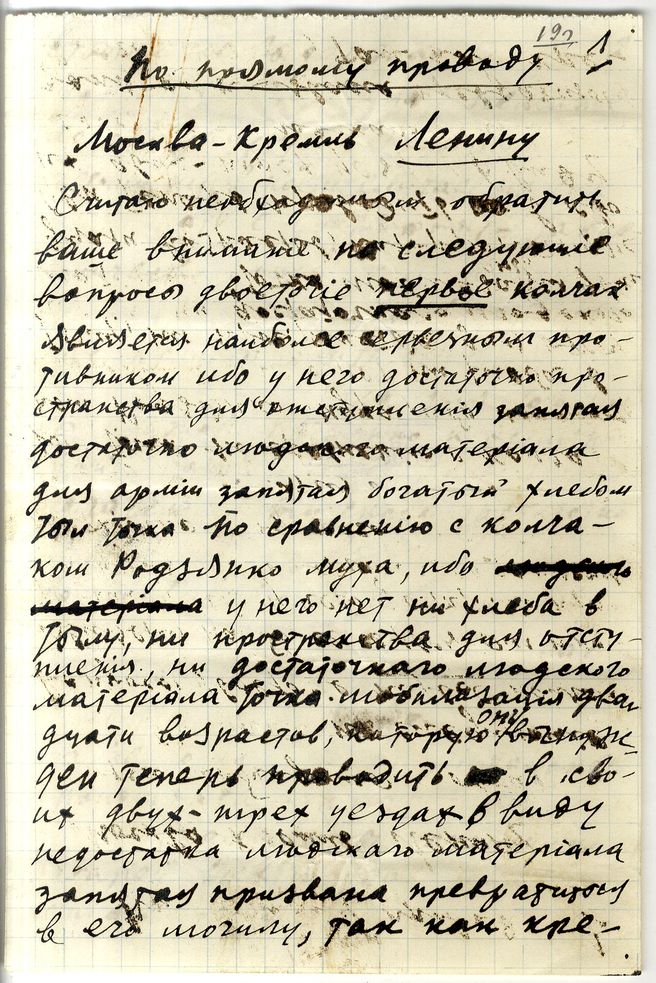 192
1
По прямому проводу
Москва – Кремль Ленину
Считаю необходимым обратить
ваше внимание на следующие
вопросы двоеточие первое колчак
является наиболее серьезным про-
тивником ибо у него достаточно про-
странства для отступления запятая
достаточно людского матерiала
для армiи запятая богатый хлебом
тыл точка По сравненiю с колча-
ком Родзянко муха, ибо людского
матерiала у него нет ни хлеба в
тылу, ни пространства для отсту-
пленiя, ни достаточнаго людского
матерiала точка мобилизацiя два
дцати возрастов, которую он вынуж-
ден теперь проводить в сво-
их двух-трех уездах в виду
недостатка людскаго матерiала
запятая призвана превратиться
в его могилу, так как кре-